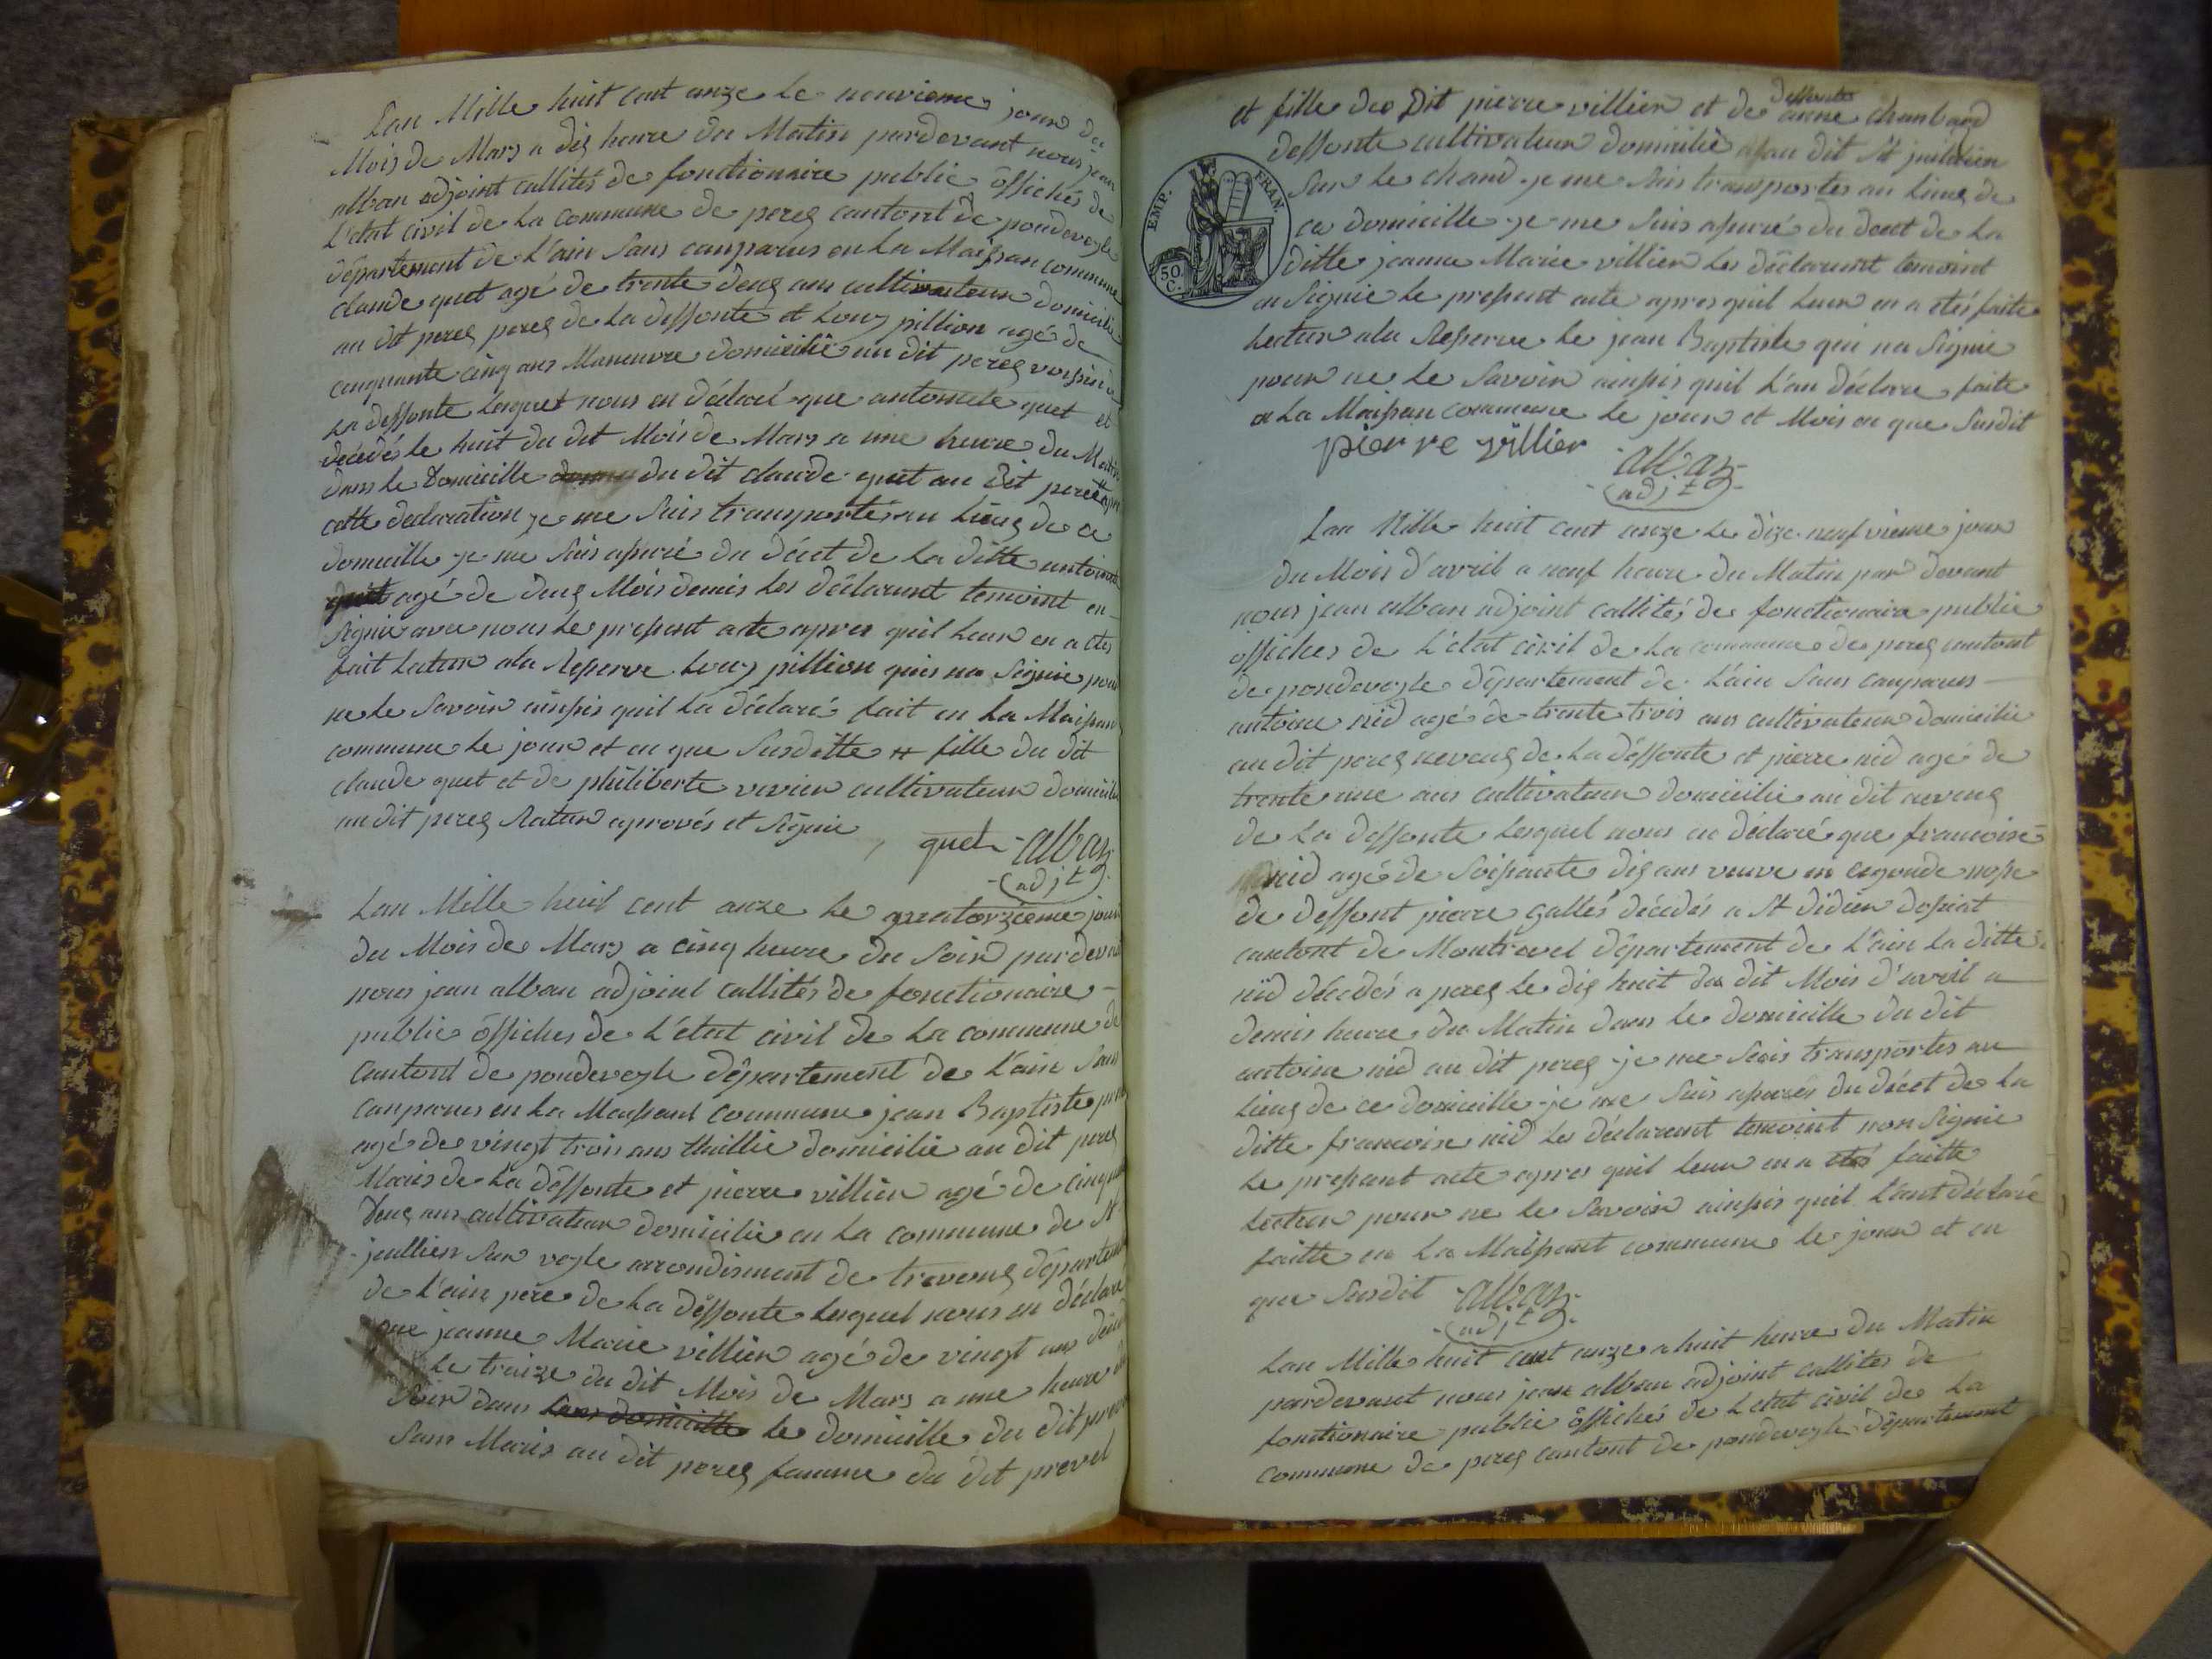 Lan Mille huit cent onze Le neuvieme jour du
Mois de Mars a dix heure du Matin pardevant nous jean
alban adjoint callités de fonctionaire public óffichés de
L'etat civil de La Commune de perex cantont de pondeveyle
département de L'ain Sans conparus en La Maispan commune
claude quet agé de trente deux ans cultivateur domicilie
au dit perex perex de La deffonte et Louy pillion agé de
cinquante cinq ans Maneuvre domicilié au dit perex voisin de
La deffonte Lesquel nous on déclaré que antoinete quet
décédés le huit du dit Mois de Mars a une heure du Matin
dans le Domicille du dit claude quet au Dit perex
cette declaration je me Suis transportés au Lieux de ce
domicille je me Suis assuré du décet de La ditte antoinete
quet agé de deux Mois demis Les déclarant temoint on
Signie avec nous Le present acte apres quil Leur en a etes
fait Lecture a la Reserve Louy pillion quis na Signie pour
ne Le Savoir ainsis quil La déclaré fait en La Maispan
commune Le jour et an que Susditte # fille du dit
claude quet et de philiberte vivier cultivateur domicilie
au dit perex Rature aprovés et Signie
quet alban
adjt
Lan Mille huit cent onze Le quatorzieme jour
du Mois de Mars a cinq heure du Soir pardevant
nous jean alban adjoint callités de fonctionaire
public óffiches de L'état civil de La commune de
Cantont de pondeveyle département de L'ain Sans
conparus en La Maispant Commune jean Baptiste
agé de vingt trois ans thaillie domicilie au dit perex
Maris de La déffonte et pierre villier agé de cinquante
deux ans cultivateur domicilie en La commune de St
jeullien Sur veyle arrondisment de trevoux département
de L'ain pere de La déffonte Lesquel nous on déclaré
que jeanne Marie villier agé de vingt ans
Le traize du dit Mois de Mars a une heure du
Soir dans Leur domicille le domicille du dit
Sans Maris au dit perex famme du dit prevel
et fille du Dit pierre villier et de deffonte anne chanbard
deffonte cultivateur domicilié au dit St juilien
Sur Le chand je me Suis transportes au Lieux de
ce domicille je me Suis assuré du decet de La
ditte jeanne Marie villier Les déclarant temoint
on Signie Le present acte apres quil Leur en a etés faite
Lecture a la Reserve Le jean Baptiste qui na Signie
pour ne Le Savoir ainsis quil L'an déclare faite
en La Maispan commune Le jour et Mois an que Susdit
pierre villier
alban
adjt
EMP. FRAN.
50 C.
Lan Mille huit cent onze Le dize neufvieme jour
du Mois d'avril a neuf heure du Matin par devant
nous jean alban adjoint callités de fonctionaire public
óffiches de L'état civil de La commune de perex cantont
de pondeveyle département de L'ain Sans conparus
antoine nid agé de trente trois ans cultivateur domicilie
au dit perex neveux de La déffonte et pierre nid agé de
trente une ans cultivateur domicilie au dit neveux
de La deffonte Lesquel nous on déclaré que francoise
nid agé de Soisante dix ans veuve en segonde nose
de deffont pierre gallés décédés a St didier
cantont de Montrevel département de L'ain La ditte
nid décédés a perex Le dix huit du dit Mois d'avril a
demis heure du Matin dans Le domicille du dit
antoine nid au dit perex je me Suis transportes au
Lieux de ce domicille je me Suis assures du décet de La
ditte francoise nid Les déclarant temoint non Signie
Le present acte apres quil Leur en a etés faitte
Lecteur pour ne Le Savoir ainsis quil L'ant déclaré
faitte en La Maispant commune Le jour et an
que Susdit alban
adjt
Lan Mille huit cent onze a huit heure du Matin
pardevant nous jean alban adjoint callites de
fonctionaire public óffichés de L'etat civil de La
Commune de perex cantont de pondeveyle département